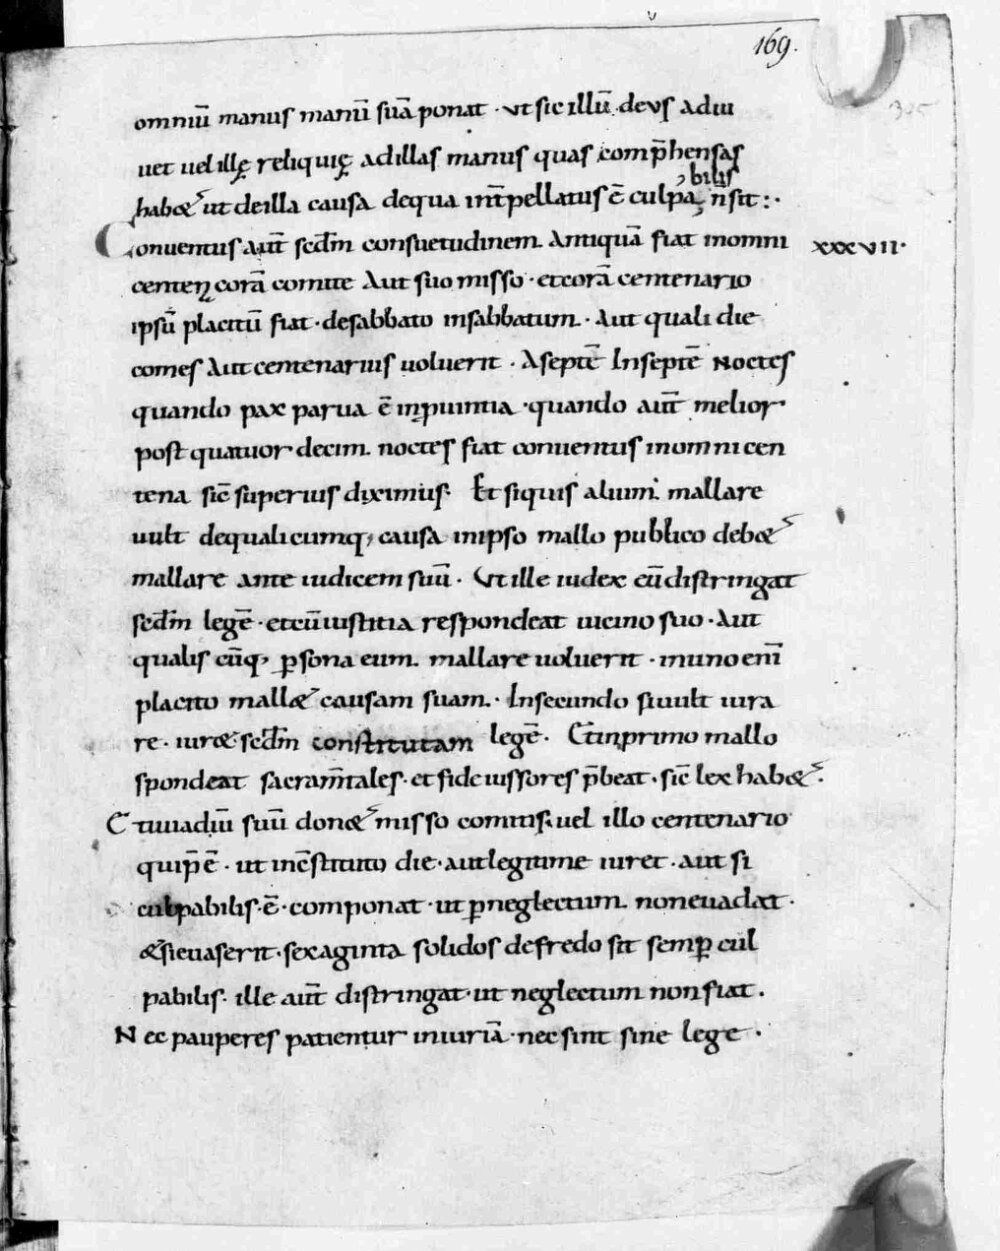 169.
omniū manus manū suā ponat · ut sic illū deus adiu
uet uel illę reliquię ad illas manus quas comp̄hensas
bilis
habet ut de illa causa de qua int̄pellatus ē culpa, n̄ sit :·
Conuentus aut̄ scdm̄ consuetudinem Antiquā fiat in omni xxxvii·
centeñ corā comite Aut suo misso · et corā centenario
ipsū placitū fiat · de sabbato in sabbatum · Aut quali die
comes Aut centenarius uoluerit · A septē In septē Noctes
quando pax parua ē in puintia · quando aut̄ melior·
post quatuor decim noctes fiat conuentus in omni cen
tena sic̄ superius diximus· Et si quis alium mallare
uult de qualicumq; causa in ipso mallo publico debet
mallare ante iudicem suū · Ut ille iudex eū distringat
scdm̄ legē · et cū iustitia respondeat uicino suo · Aut
qualis cūq; ꝑsona eum mallare uoluerit · in uno enī
placito mallet causam suam · In secundo si uult iura
re · iuret scdm̄ constitutam legē · Et in primo mallo
spondeat sacram̄tales · et fideiussores p̄beat · sic̄ lex habet·
Et uuadiū suū donet misso comitis · uel illo centenario
qui p̄ē · ut in c̄stituto die · aut legitime iuret · aut si
culpabilis · ē · componat · ut ꝑ neglectum non euadat ·
et si euaserit · sexaginta solidos de fredo sit semꝑ cul
pabilis · ille aut̄ distringat · ut neglectum non fiat .
Nec pauperes patientur iniuriā · nec sint sine lege ·